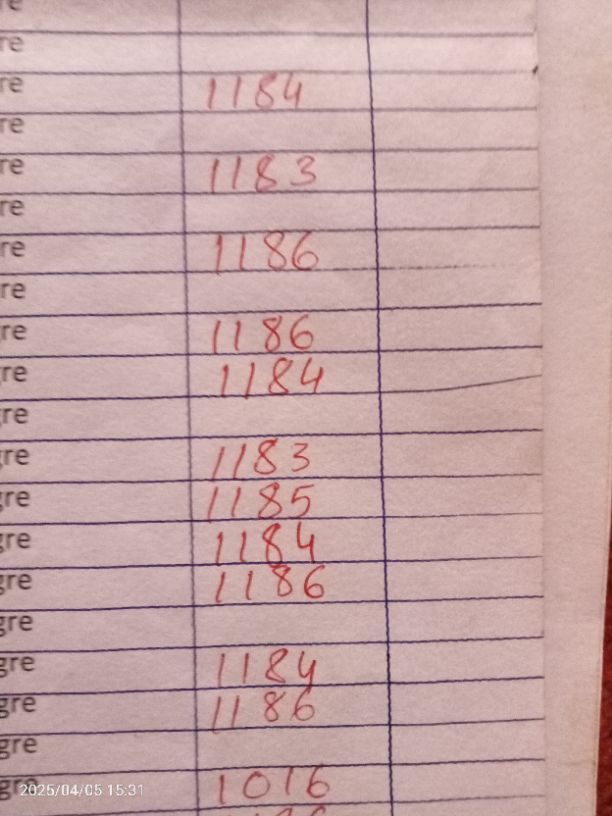 re
re
re 1184
re
re 1183
re
re 1186
re
re 1186
re 1184
gre
gre 1183
gre 1185
gre 1184
gre 1186
gre
gre 1184
gre 1186
gre
gre 1016
2025/04/05 15:31